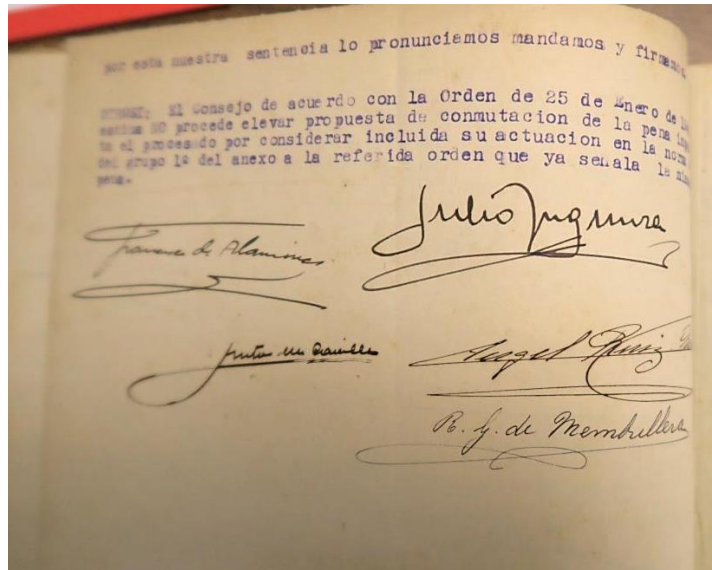 por esta nuestra sentencia lo pronunciamos mandamos y firmamos.
OTROSI: El Consejo de acuerdo con la Orden de 25 de Enero de
estima NO procede elevar propuesta de conmutacion de la pena
ta al procesado por considerar incluida su actuacion en la norma
del grupo 1º del anexo a la referida orden que ya señala la
pena.
Francisco de Alaminos
Julio
Angel Ruiz
R. G. de Membrillera